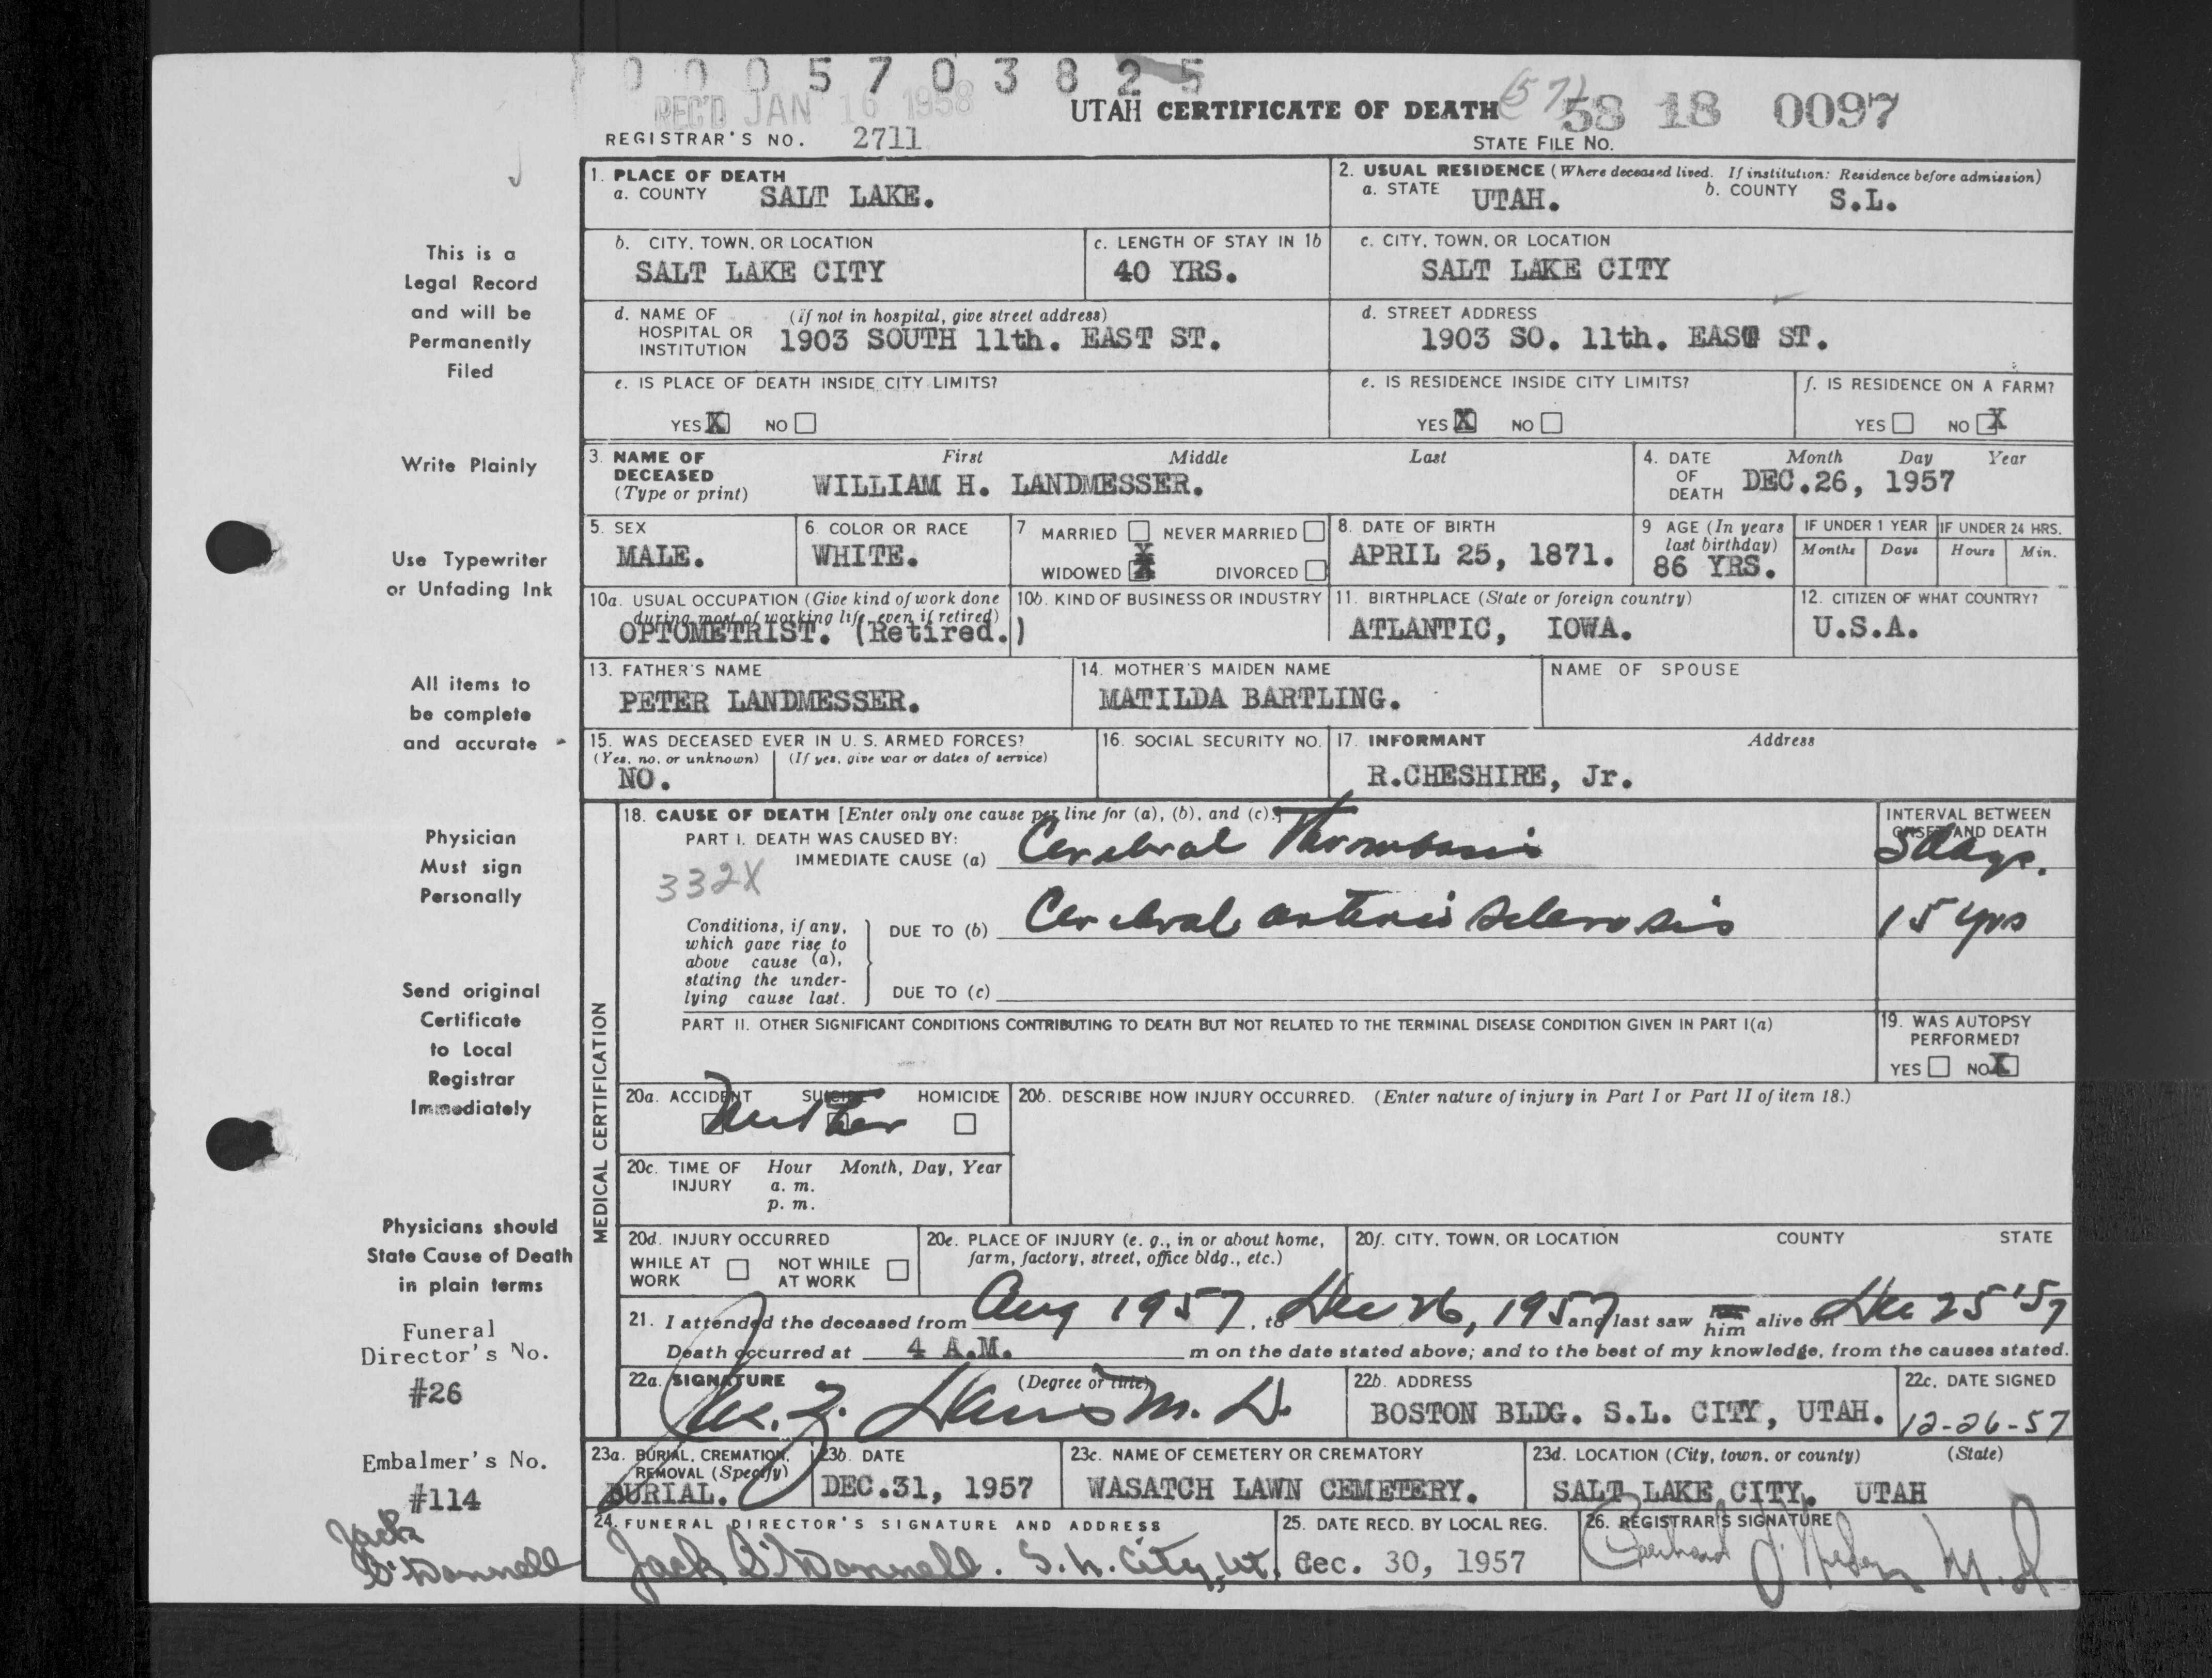 0 0 0 5 7 0 3 8 2 5
REC'D JAN 16 1958
UTAH CERTIFICATE OF DEATH (57) 58 18 0097
REGISTRAR'S NO. 2711 STATE FILE NO.
1. PLACE OF DEATH
a. COUNTY SALT LAKE.
2. USUAL RESIDENCE (Where deceased lived. If institution: Residence before admission)
a. STATE UTAH. b. COUNTY S.L.
b. CITY, TOWN, OR LOCATION
SALT LAKE CITY
c. LENGTH OF STAY IN 1b
40 YRS.
c. CITY, TOWN, OR LOCATION
SALT LAKE CITY
d. NAME OF HOSPITAL OR INSTITUTION (if not in hospital, give street address)
1903 SOUTH 11th. EAST ST.
d. STREET ADDRESS
1903 SO. 11th. EAST ST.
e. IS PLACE OF DEATH INSIDE CITY LIMITS?
YES X NO
e. IS RESIDENCE INSIDE CITY LIMITS?
YES X NO
f. IS RESIDENCE ON A FARM?
YES NO X
3. NAME OF DECEASED (Type or print)
First Middle Last
WILLIAM H. LANDMESSER.
4. DATE OF DEATH
Month Day Year
DEC.26, 1957
5. SEX
MALE.
6. COLOR OR RACE
WHITE.
7 MARRIED NEVER MARRIED
WIDOWED X DIVORCED
8. DATE OF BIRTH
APRIL 25, 1871.
9 AGE (In years last birthday)
86 YRS.
IF UNDER 1 YEAR IF UNDER 24 HRS.
Months Days Hours Min.
10a. USUAL OCCUPATION (Give kind of work done during most of working life, even if retired)
OPTOMETRIST. (Retired.)
10b. KIND OF BUSINESS OR INDUSTRY
11. BIRTHPLACE (State or foreign country)
ATLANTIC, IOWA.
12. CITIZEN OF WHAT COUNTRY?
U.S.A.
13. FATHER'S NAME
PETER LANDMESSER.
14. MOTHER'S MAIDEN NAME
MATILDA BARTLING.
NAME OF SPOUSE
15. WAS DECEASED EVER IN U. S. ARMED FORCES?
(Yes, no, or unknown) (If yes, give war or dates of service)
NO.
16. SOCIAL SECURITY NO.
17. INFORMANT Address
R.CHESHIRE, Jr.
MEDICAL CERTIFICATION
18. CAUSE OF DEATH [Enter only one cause per line for (a), (b), and (c).]
PART I. DEATH WAS CAUSED BY:
IMMEDIATE CAUSE (a) Cerebral Thrombosis
INTERVAL BETWEEN ONSET AND DEATH
5 days.
332X
Conditions, if any, which gave rise to above cause (a), stating the underlying cause last.
DUE TO (b) Cerebral arterio sclerosis 15 yrs
DUE TO (c)
PART II. OTHER SIGNIFICANT CONDITIONS CONTRIBUTING TO DEATH BUT NOT RELATED TO THE TERMINAL DISEASE CONDITION GIVEN IN PART I(a)
19. WAS AUTOPSY PERFORMED?
YES NO X
20a. ACCIDENT SUICIDE HOMICIDE
Neither
20b. DESCRIBE HOW INJURY OCCURRED. (Enter nature of injury in Part I or Part II of item 18.)
20c. TIME OF INJURY Hour Month, Day, Year
a. m.
p. m.
20d. INJURY OCCURRED
WHILE AT WORK NOT WHILE AT WORK
20e. PLACE OF INJURY (e. g., in or about home, farm, factory, street, office bldg., etc.)
20f. CITY, TOWN, OR LOCATION COUNTY STATE
21. I attended the deceased from Aug 1957, to Dec 26, 1957 and last saw him alive on Dec 25 '57
Death occurred at 4 A.M. m on the date stated above; and to the best of my knowledge, from the causes stated.
22a. SIGNATURE (Degree or title)
M. D.
22b. ADDRESS
BOSTON BLDG. S.L. CITY, UTAH.
22c. DATE SIGNED
12-26-57
23a. BURIAL, CREMATION, REMOVAL (Specify)
BURIAL.
23b. DATE
DEC.31, 1957
23c. NAME OF CEMETERY OR CREMATORY
WASATCH LAWN CEMETERY.
23d. LOCATION (City, town, or county) (State)
SALT LAKE CITY. UTAH
24. FUNERAL DIRECTOR'S SIGNATURE AND ADDRESS
Jack O'Donnell. S.L. City, Ut.
25. DATE RECD. BY LOCAL REG.
Dec. 30, 1957
26. REGISTRAR'S SIGNATURE
M.D.
This is a
Legal Record
and will be
Permanently
Filed
Write Plainly
Use Typewriter
or Unfading Ink
All items to
be complete
and accurate
Physician
Must sign
Personally
Send original
Certificate
to Local
Registrar
Immediately
Physicians should
State Cause of Death
in plain terms
Funeral
Director's No.
#26
Embalmer's No.
#114
Jack
O'Donnell